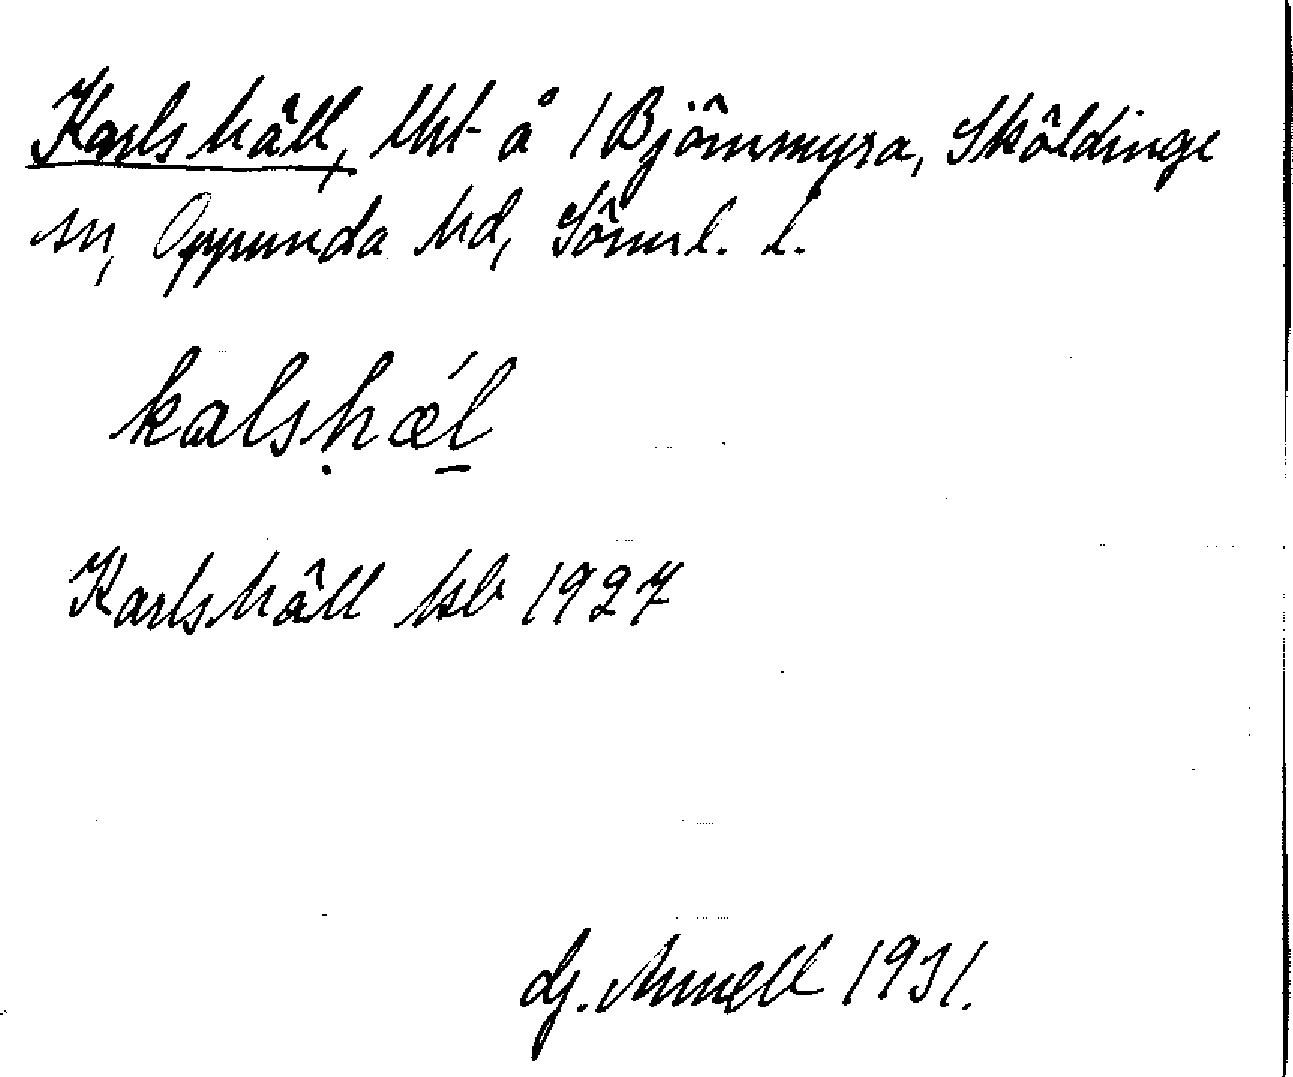 Karlshäll, lht å 1 Björnmyra, Sköldinge
sn, Oppunda hd, Sörml. l.
kalsḥǽḻ
Karlshäll 1927
1931.